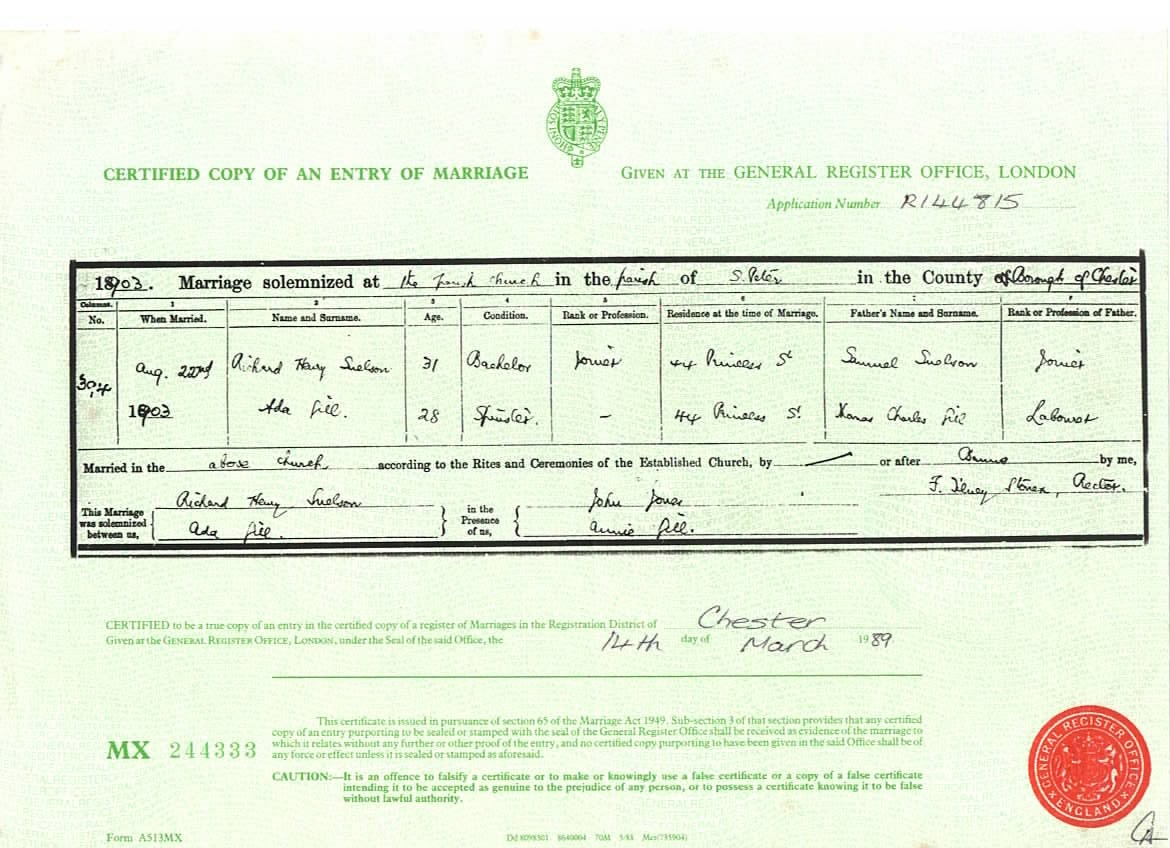 CERTIFIED COPY OF AN ENTRY OF MARRIAGE
GIVEN AT THE GENERAL REGISTER OFFICE, LONDON
Application Number R144815
1903. Marriage solemnized at the parish church in the parish of S. Peter in the County of Borough of Chester
Columns. 1 2 3 4 5 6 7 8
No. When Married. Name and Surname. Age. Condition. Rank or Profession. Residence at the time of Marriage. Father's Name and Surname. Rank or Profession of Father.
304 Aug. 22nd Richard Henry Snelson 31 Bachelor Joiner 44 Princess St Samuel Snelson Joiner
1903 Ada Gill. 28 Spinster. – 44 Princess St. Charles Gill Labourer
Married in the above church according to the Rites and Ceremonies of the Established Church, by or after Banns by me,
F. Stonex, Rector.
This Marriage was solemnized between us, Richard Henry Snelson in the Presence of us, John Jones
Ada Gill. Annie Gill.
CERTIFIED to be a true copy of an entry in the certified copy of a register of Marriages in the Registration District of Chester
Given at the GENERAL REGISTER OFFICE, LONDON, under the Seal of the said Office, the 14th day of March 1989
This certificate is issued in pursuance of section 65 of the Marriage Act 1949. Sub-section 3 of that section provides that any certified
copy of an entry purporting to be sealed or stamped with the seal of the General Register Office shall be received as evidence of the marriage to
which it relates without any further or other proof of the entry, and no certified copy purporting to have been given in the said Office shall be of
any force or effect unless it is sealed or stamped as aforesaid.
MX 244333
CAUTION:—It is an offence to falsify a certificate or to make or knowingly use a false certificate or a copy of a false certificate
intending it to be accepted as genuine to the prejudice of any person, or to possess a certificate knowing it to be false
without lawful authority.
GENERAL REGISTER OFFICE
ENGLAND
Form A513MX
Dd 8098501 8640004 70M 5/88 Mcr(735904)